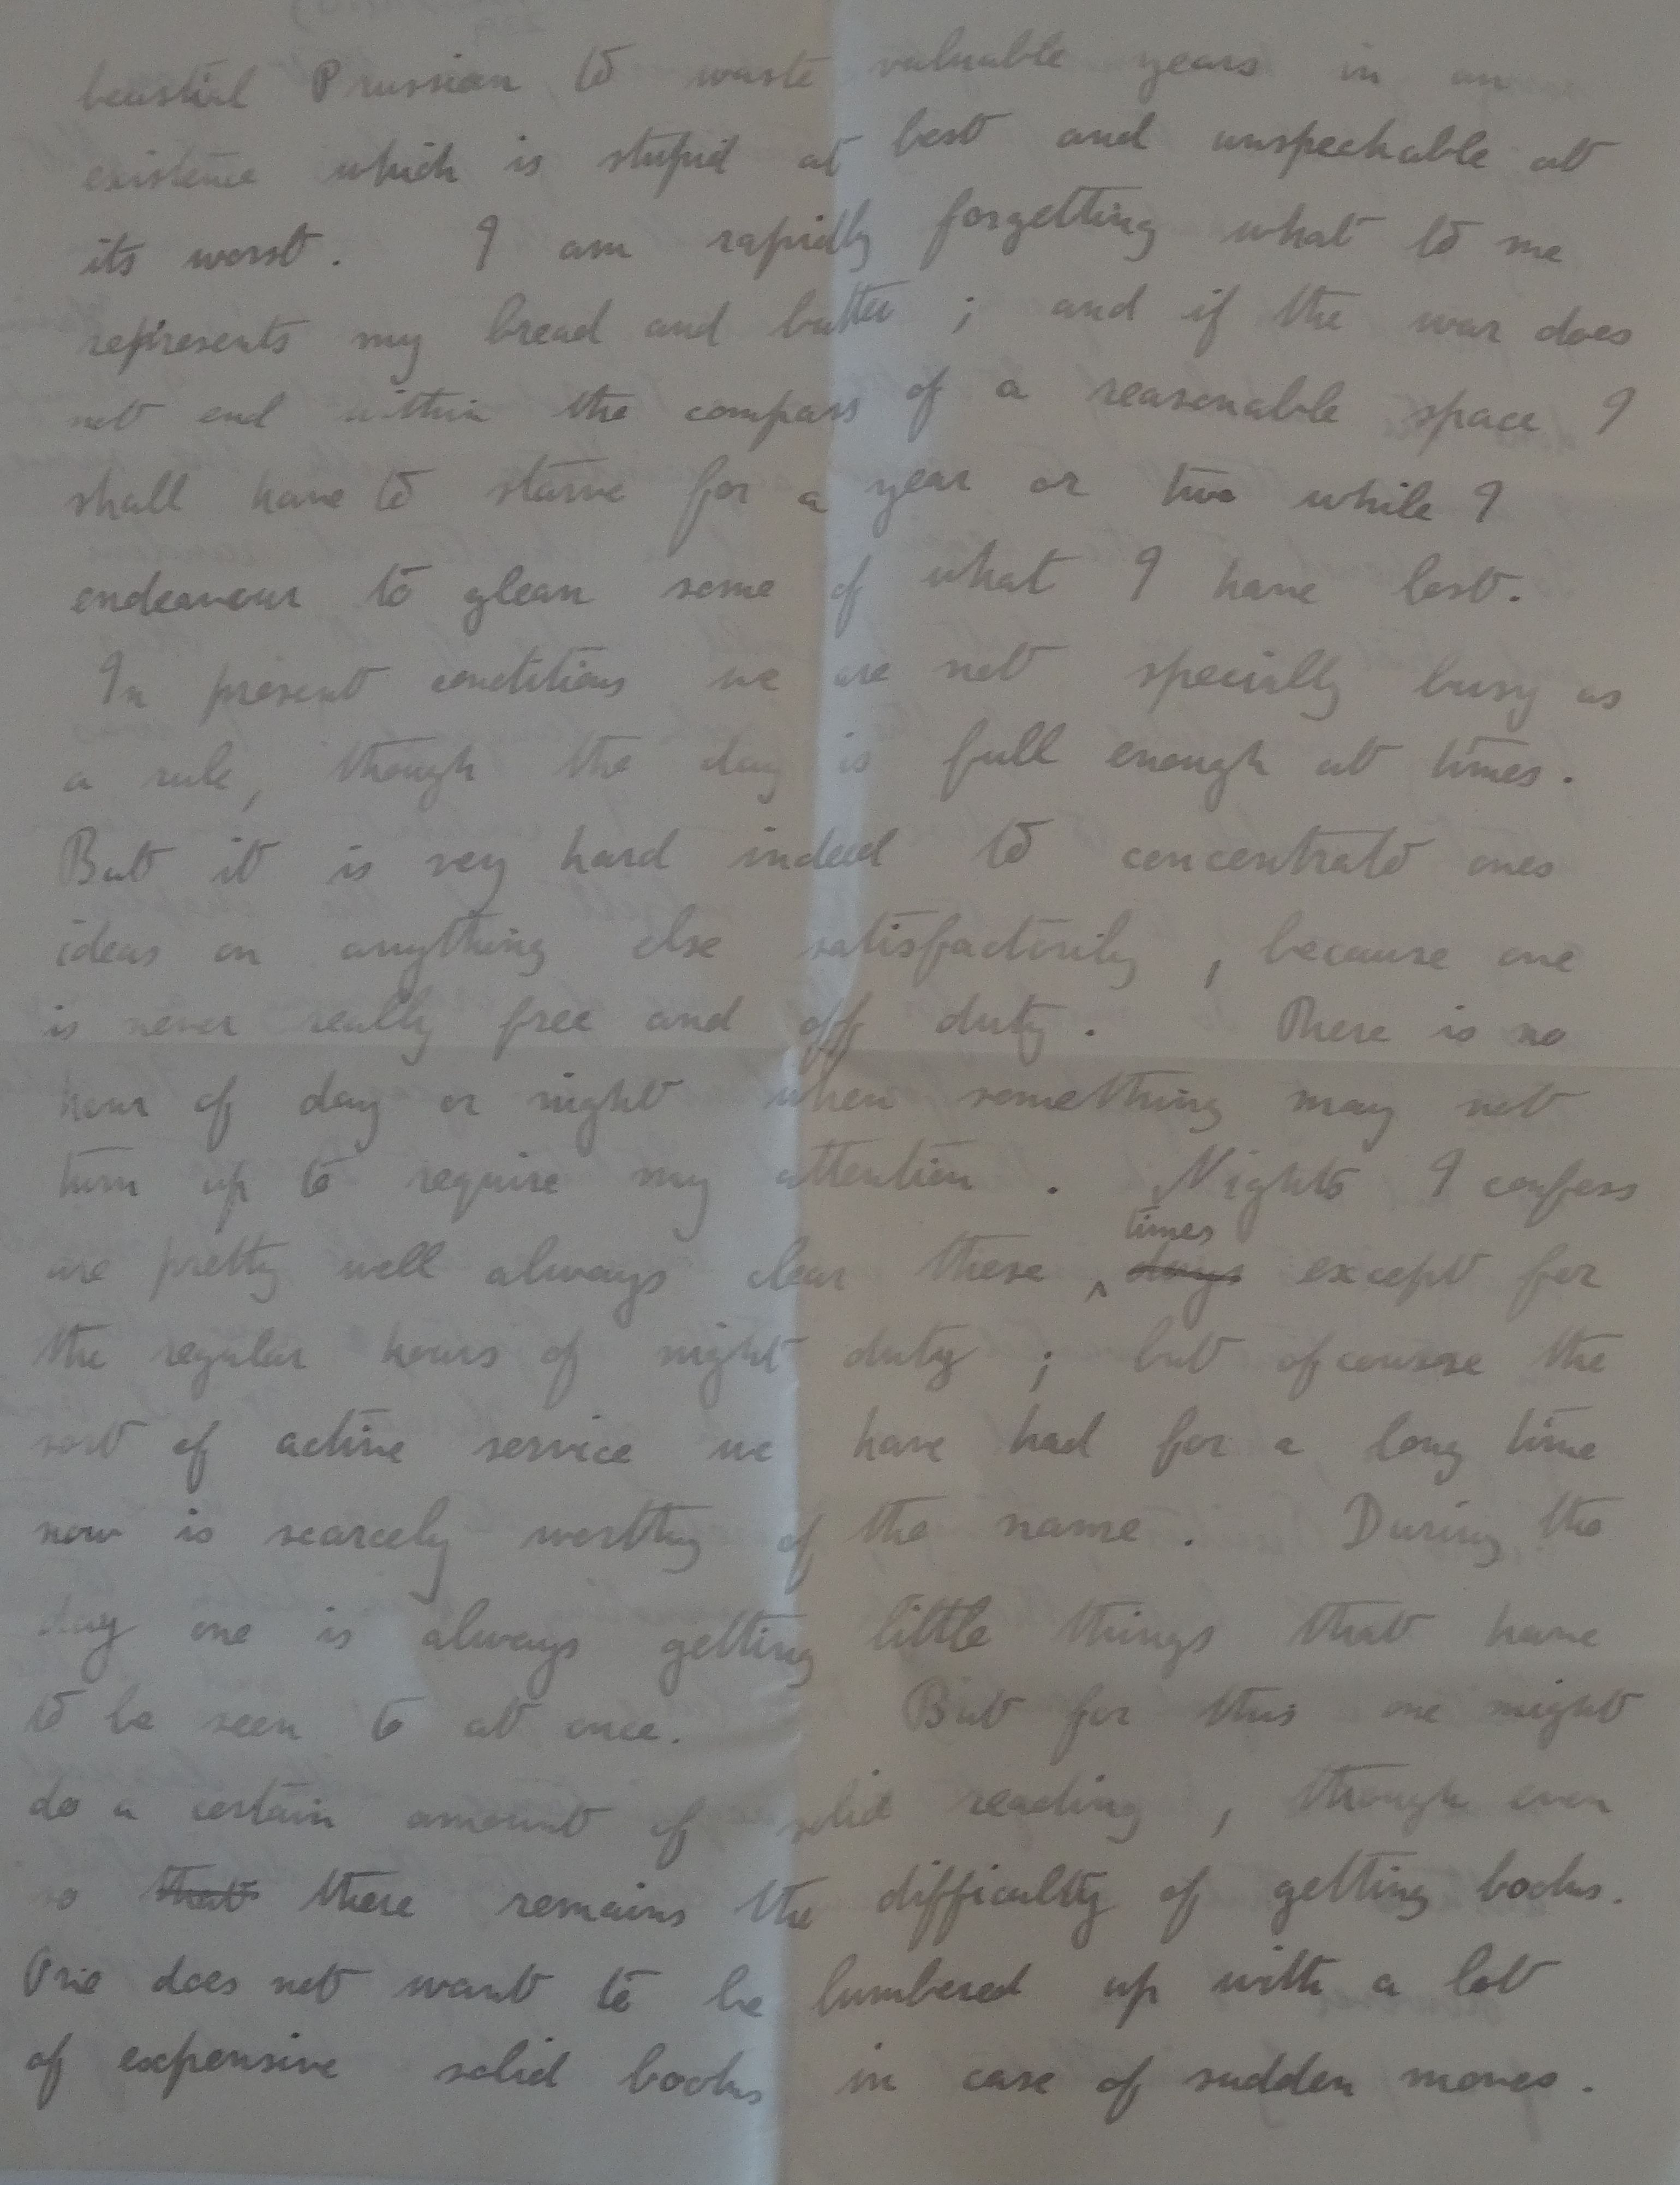 beastial Prussian to waste valuable years in an
existence which is stupid at best and unspeakable at
its worst. I am rapidly forgetting what to me
represents my bread and butter ; and if the war does
not end within the compass of a reasonable space I
shall have to starve for a year or two while I
endeavour to glean some of what I have lost.
In present conditions we are not specially busy as
a rule, though the day is full enough at times.
But it is very hard indeed to concentrate ones
ideas on anything else satisfactorily, because one
is never really free and off duty. There is no
hour of day or night when something may not
turn up to require my attention. Nights I confess
times
are pretty well always clear these ^ days except for
the regular hours of night duty ; but ofcourse the
sort of active service we have had for a long time
now is scarcely worthy of the name. During the
day one is always getting little things that have
to be seen to at once. But for this one might
do a certain amount of solid reading, though even
so that there remains the difficulty of getting books.
One does not want to be lumbered up with a lot
of expensive solid books in case of sudden moves.